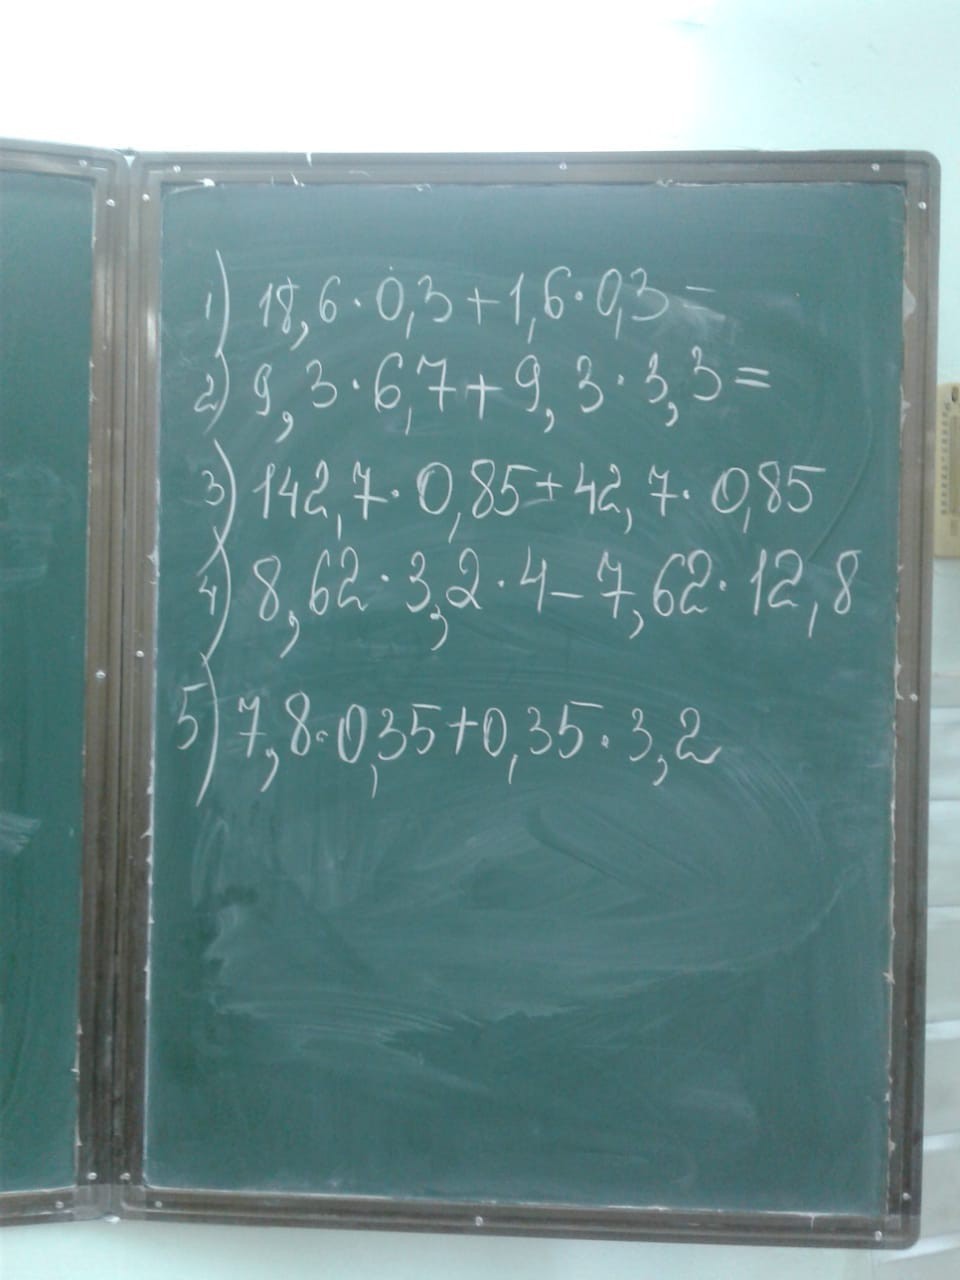 1) 18,6·0,3+1,6·0,3=
2) 9,3·6,7+9,3·3,3=
3) 142,7·0,85+42,7·0,85
4) 8,62·3,2·4-7,62·12,8
5) 7,8·0,35+0,35·3,2